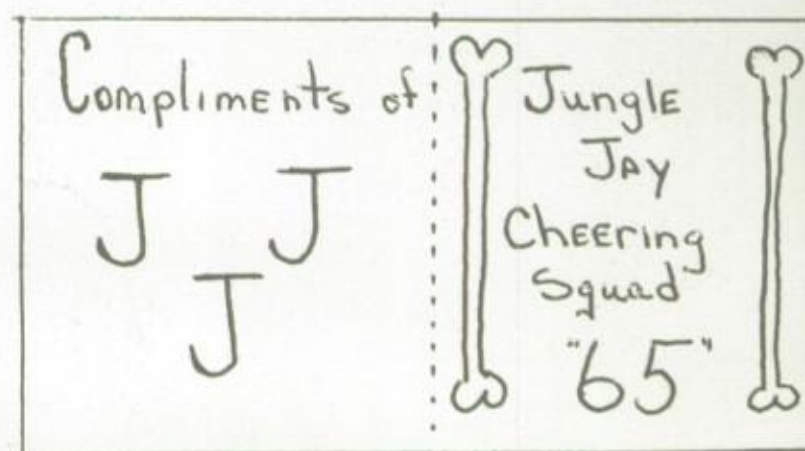 Compliments of
J J
J
Jungle
Jay
Cheering
Squad
"65"